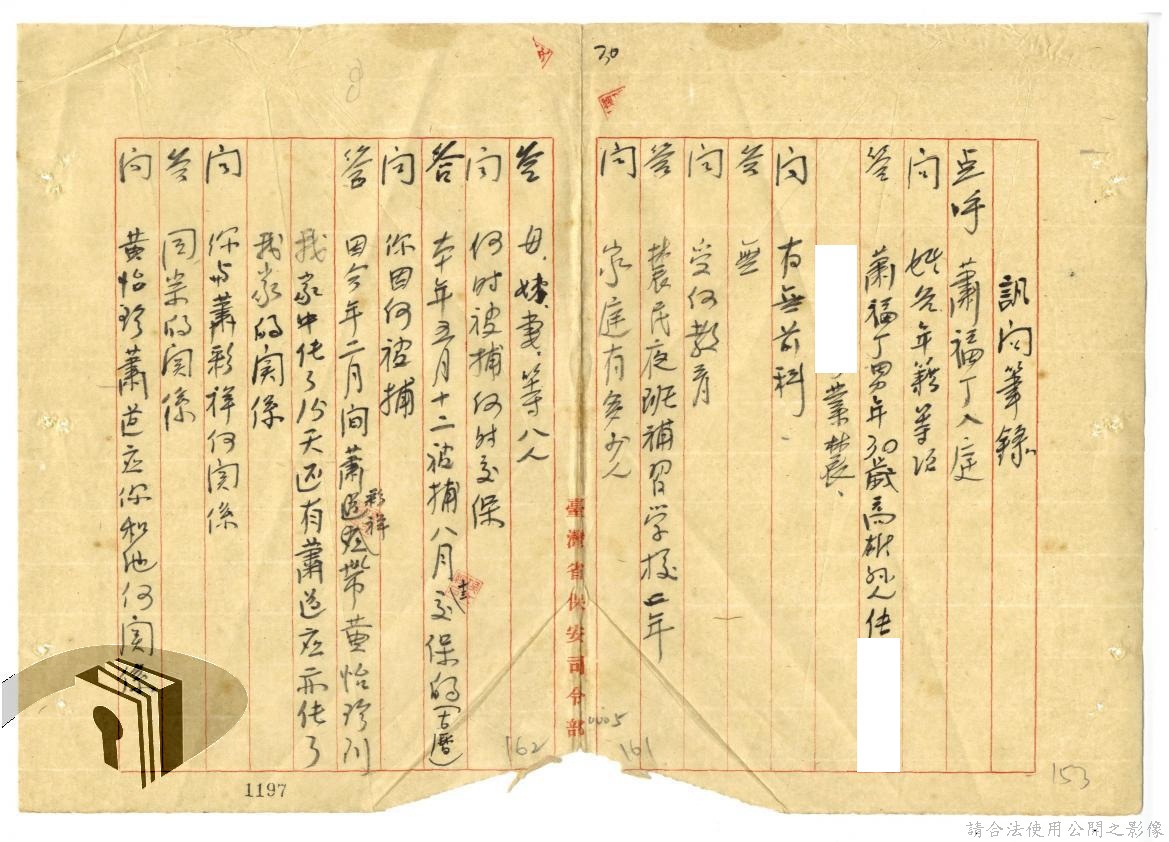 30
訊問筆錄
点呼 蕭福丁入庭
问 姓名年籍等項
答 蕭福丁男年30歲高雄県人住
業農、
问 有無前科
答 無
问 受何教育
答 農民夜班補習学校二年
问 家庭有多少人
臺灣省保安司令部
答 母、妻、等八人
问 何时被捕何时交保
答 本年五月十二被捕八月交保的(旧曆)
问 你因何被捕
答 因今年二月间蕭彩祥帶黄怡珍到
我家中住了15天还有蕭道应亦住了
我家的関係
问 你与蕭彩祥何関係
答 同業的関係
问 黄怡珍蕭道应你和他何関係
0005
161
162
153
1197
請合法使用公開之影像